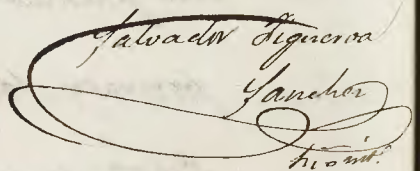 Salvador Figueroa
Sanchez